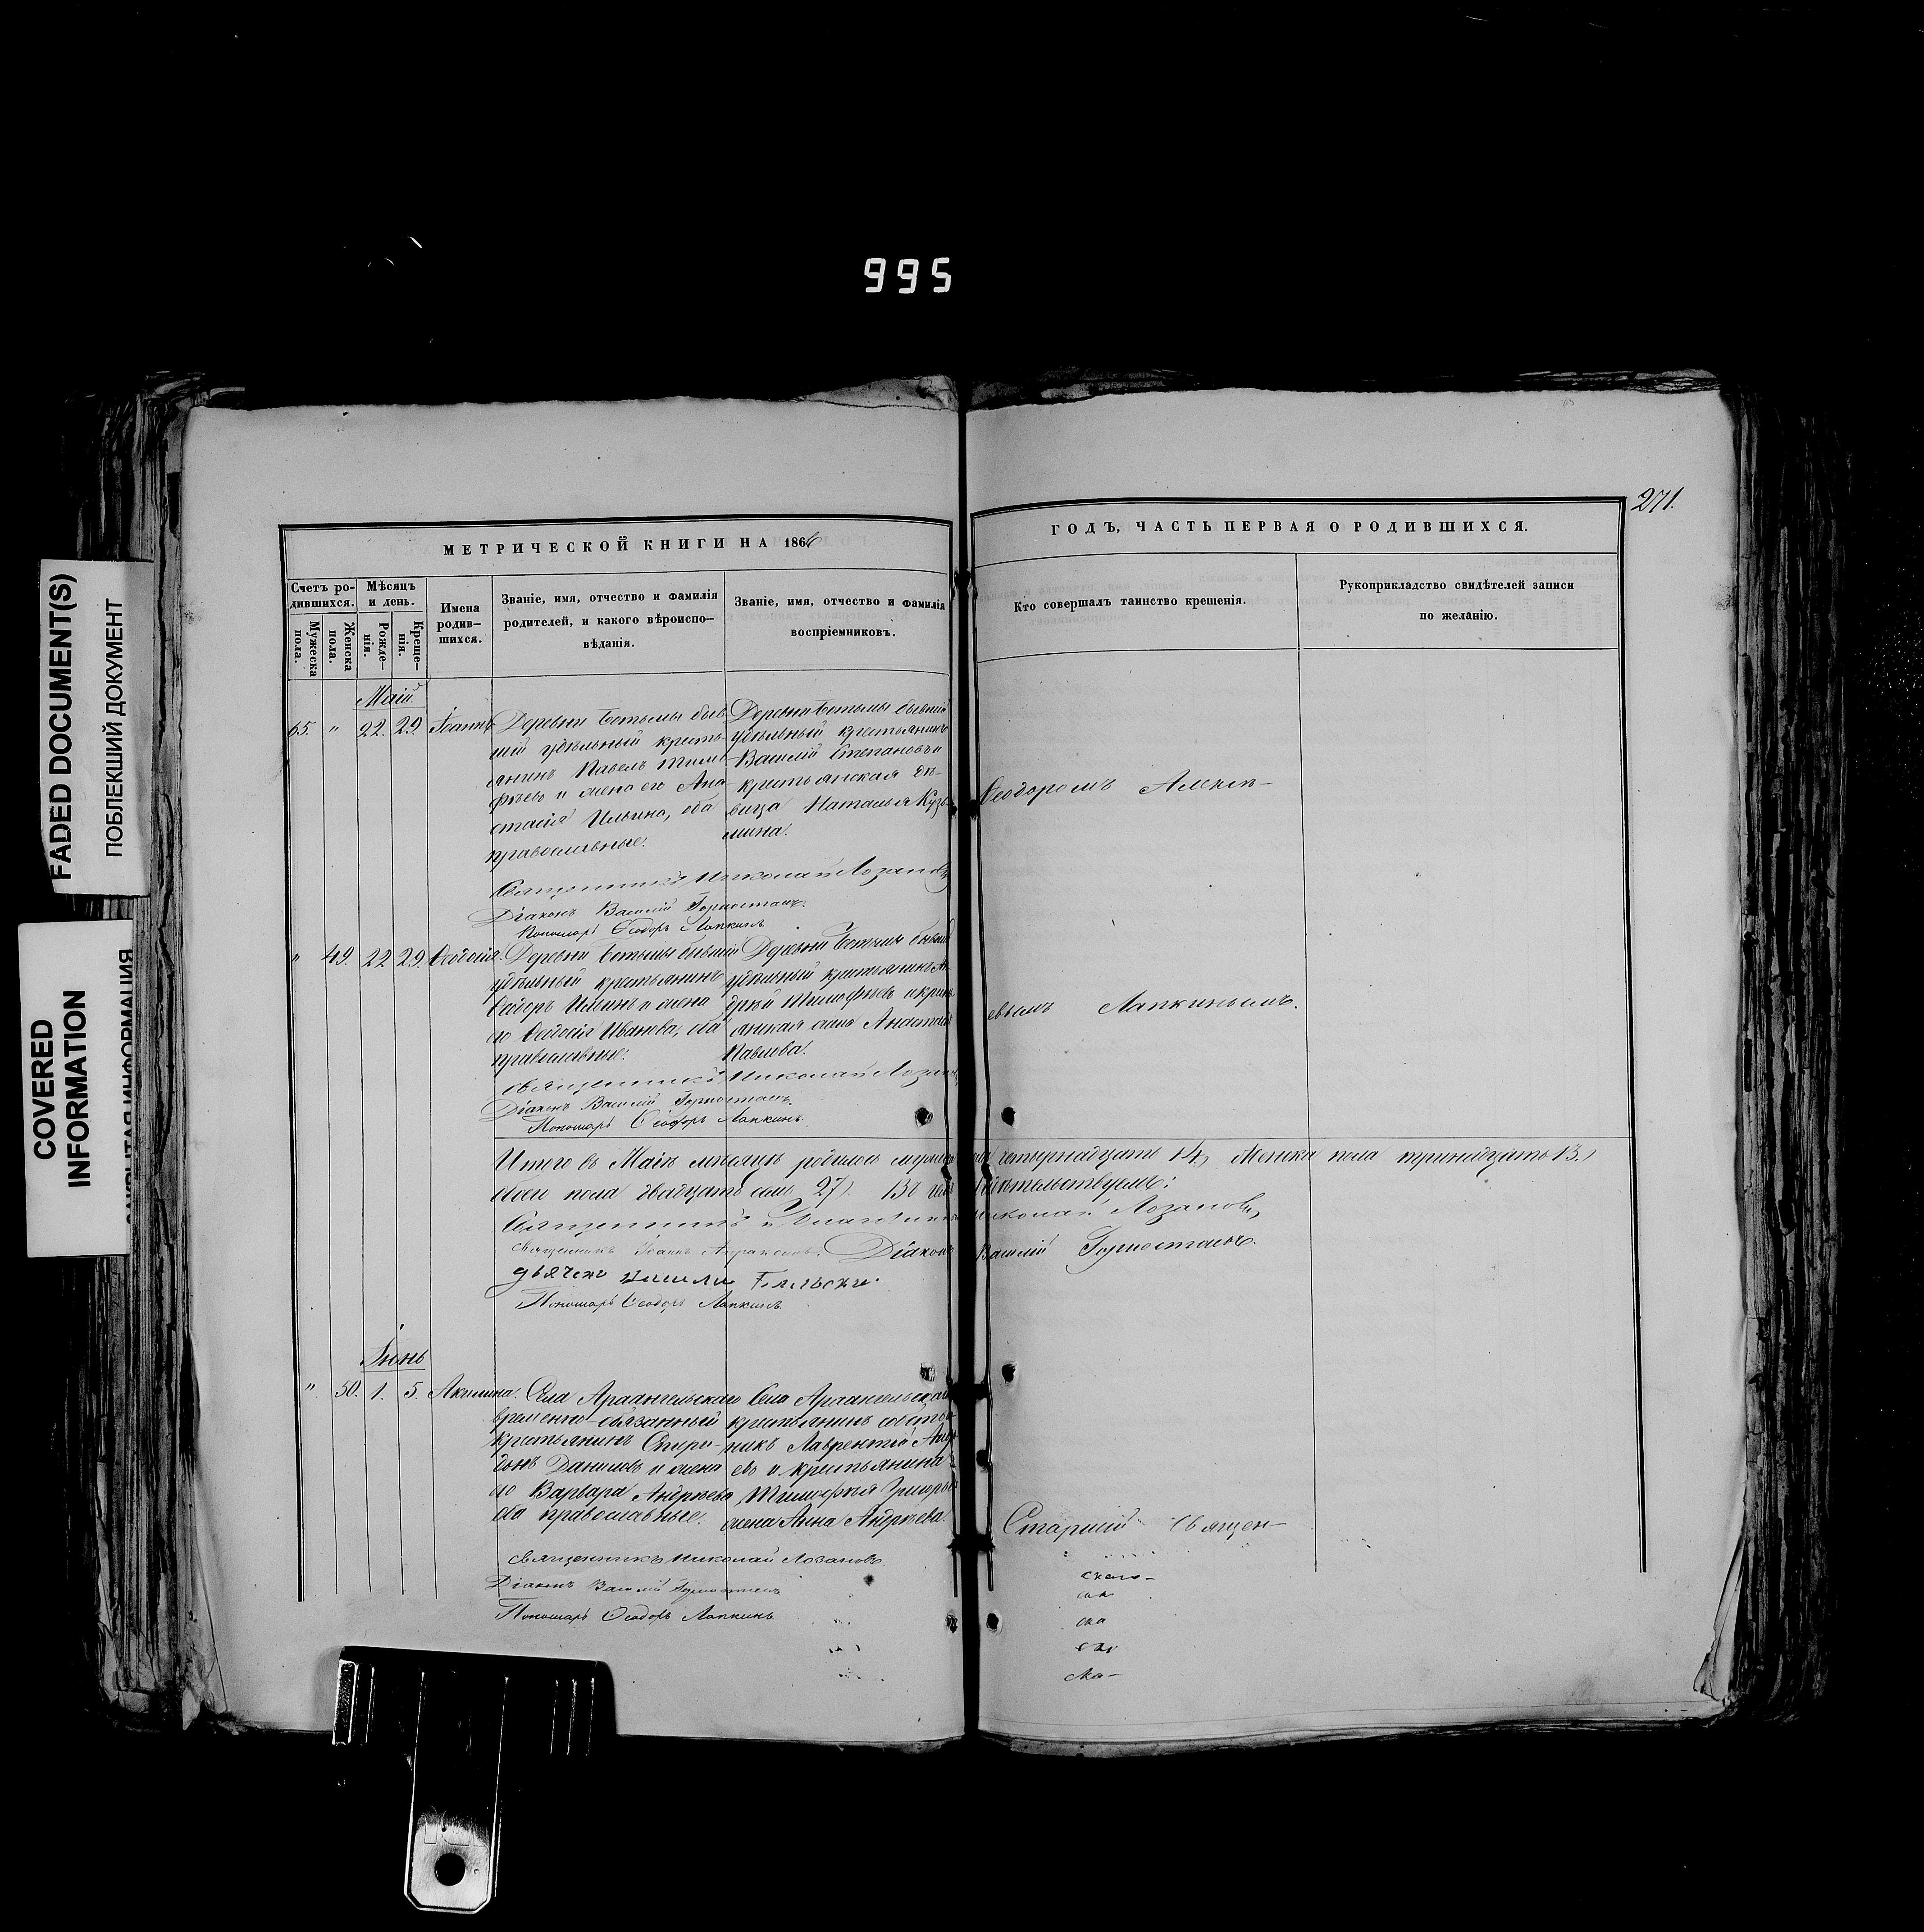 995
FADED DOCUMENT(S)
ПОБЛЕКШИЙ ДОКУМЕНТ
COVERED
INFORMATION
271.
МЕТРИЧЕСКОЙ КНИГИ НА 1866
ГОДЪ, ЧАСТЬ ПЕРВАЯ О РОДИВШИХСЯ.
Счетъ ро-
дившихся.
Мужеска
пола.
Женска
пола.
Мѣсяцъ
и день.
Рожде-
нія.
Креще-
нія.
Имена
родив-
шихся.
Званіе, имя, отчество и фамилія
родителей, и какого вѣроиспо-
вѣданія.
Званіе, имя, отчество и фамилія
воспріемниковъ.
Кто совершалъ таинство крещенія.
Рукоприкладство свидѣтелей записи
по желанію.
Маій
65. " 22. 29. Іоаннъ
Деревни быв-
шій удѣльный кресть-
янинъ Павелъ Тимо-
фѣевъ и жена его Ана-
стасія Ильина, оба
православные.
Деревни бывшій
удѣльный крестьянинъ
Василій Степановъ и
крестьянская дѣ-
вица Наталья Кузь-
мина.
Ѳеодоромъ Алексѣ-
Священникъ Николай Лозановъ
Діаконъ Василій Горностаевъ.
Пономарь Ѳеодоръ Лапкинъ
" 49. 22 29. Ѳеодосія.
Деревни бывшій
удѣльный крестьянинъ
Ѳеодоръ Ильинъ и жена
его Ѳеодосія Иванова, оба
православные.
Деревни бывшій
удѣльный крестьянинъ Ан-
дрей Тимофѣевъ и кресть-
янская жена Анастасія
Павлова.
евымъ Лапкинымъ.
Священникъ Николай Лозановъ
Діаконъ Василій Горностаевъ.
Пономарь Ѳеодоръ Лапкинъ.
Итого въ Маіѣ мѣсяцѣ родилось четырнадцать 14, Женска пола тринадцать 13.)
обоего пола двадцать семь 27).
Священникъ Николай Лозановъ,
Священникъ Іоаннъ Діаконъ Василій Горностаевъ.
Пономарь Ѳеодоръ Лапкинъ.
Іюнь
" 50. 1. 5. Акилина.
Села Архангельскаго
временно-обязанный
крестьянинъ Спири-
донъ Даниловъ и жена
его Варвара Андреева
оба православные.
Села Архангельскаго
крестьянинъ собствен-
никъ Лаврентій
евъ и крестьянина
Тимофѣя Григорьева
жена Анна Андреева.
Старшій Священ-
Священникъ Николай Лозановъ
Діаконъ Василій Горностаевъ
Пономарь Ѳеодоръ Лапкинъ